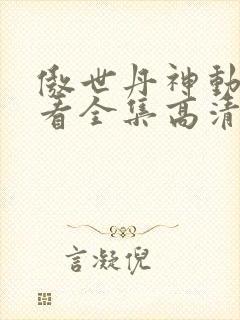 傲世丹神動
看全集高清
言凝倪